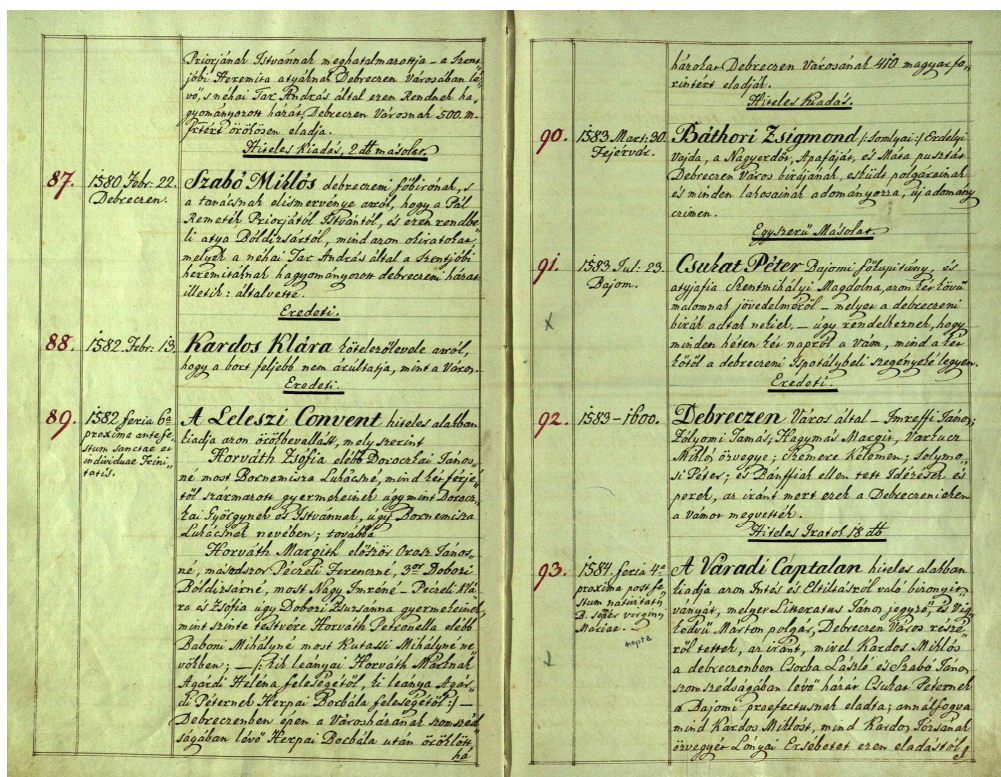 Priorjának Istvánnak meghatalmazottja – a Szent
jóbi Heremita atyáknak Debreczen Városában lé„
vő, s néhai Tar András által ezen Rendnek ha„
gyományozott házát, Debreczen Városnak 500. m.
frtért örökösen eladja.
Hiteles Kiadás, 2 db másolat.
87. 1580 Febr: 22. Szabó Miklós debreczeni főbirónak, s
Debreczen. a tanácsnak elismervénye arról, hogy a Pál
Remeték Priorjától Istvántól, és ezen rendbe„
li atya Boldizsártól, mind azon okiratokat
melyek a néhai Tar András által a Szentjóbi
heremitáknak hagyományozott debreczeni házat
illetik: általvette.
Eredeti.
88. 1582. Febr: 13. Kardos Klára kötelezőlevele arról,
hogy a bort feljebb nem árúltatja, mint a Város.
Eredeti.
89. 1582 feria 6ª A Leleszi Convent hiteles alakban
proxima ante fe„ kiadja azon örökbevallást, mely szerint
stum sanctae et Horváth Zsófia előbb Doroczkai János„
individuae Trini„ né most Bornemisza Lukácsné, mind két férjé„
tatis. től származott gyermekeinek úgymint Dorocz„
kai Györgynek és Istvánnak, úgy Bornemisza
Lukácsnak nevében; továbbá
Horváth Margith először Orosz János„
né, másodszor Péczeli Ferenczné, 3or Dobozi
Boldizsárné, most Nagy Imréné – Péczeli Klá„
ra és Zsófia úgy Dobozi Zsuzsánna gyermekeinek,
mint szinte testvére Horváth Petronella előbb
Baboni Mihályné most Kutassi Mihályné ne„
vökben; – /: kik leányai Horváth Mártnak
Agárdi Heléna feleségétől, ki leánya Agár„
di Péternek Herpai Borbála feleségétől :/ –
Debreczenben épen a Városházának szomszéd„
ságában lévő Herpai Borbála után öröklött
há
házokat Debreczen Városának 410 magyar fo„
rintért eladják.
Hiteles Kiadás.
90. 1583. Mart: 30. Báthori Zsigmond /: Somlyai :/ Erdélyi
Fejérvár. Vajda, a Nagyerdőt, Apafáját, és Máta pusztát
Debreczen Város birájának, esküdt polgárainak
és minden lakosainak adományozza, új adomány
czímen.
Egyszerű Másolat.
91. 1583 Jul: 23. Csukat Péter Bajomi főkapitány, és
Bajom. atyjafia Szentmihályi Magdolna, azon két kövű
malomnak jövedelméről – melyet a debreczeni
birák adtak nekik, – úgy rendelkeznek, hogy
minden héten két napról a vám, mind a két
kőtől a debreczeni Ispotálybeli szegényeké legyen.
Eredeti.
92. 1583–1600. Debreczen Város által – Imreffi János;
Zólyomi Tamás; Hagymás Margit, Varkucz
Miklós özvegye; Szemere Kelemen; Solymo„
si Péter; és Bánffiak ellen tett Idézések és
perek, az iránt mert ezek a Debreczenieken
a vámot megvették.
Hiteles Iratok 18 db
93. 1584. feria 4ª A Váradi Cáptalan hiteles alakban
proxima post fe„ kiadja azon Intés és Eltiltásról való bizonyit„
stum nativitatis ványát, melyet Literatus János jegyző, és Víg
B. semper virginis Kedvű Márton polgár, Debreczen Város részé„
Mariae. ről tettek, az iránt, mivel Kardos Miklós
a debreczenben Csorba László és Szabó János
szomszédságában lévő házát Csukat Péternek
a Bajomi praefectusnak eladta; annálfogva
mind Kardos Miklóst, mind Kardos Józsának
özvegyét Lónyai Ersébetet ezen eladástól
el